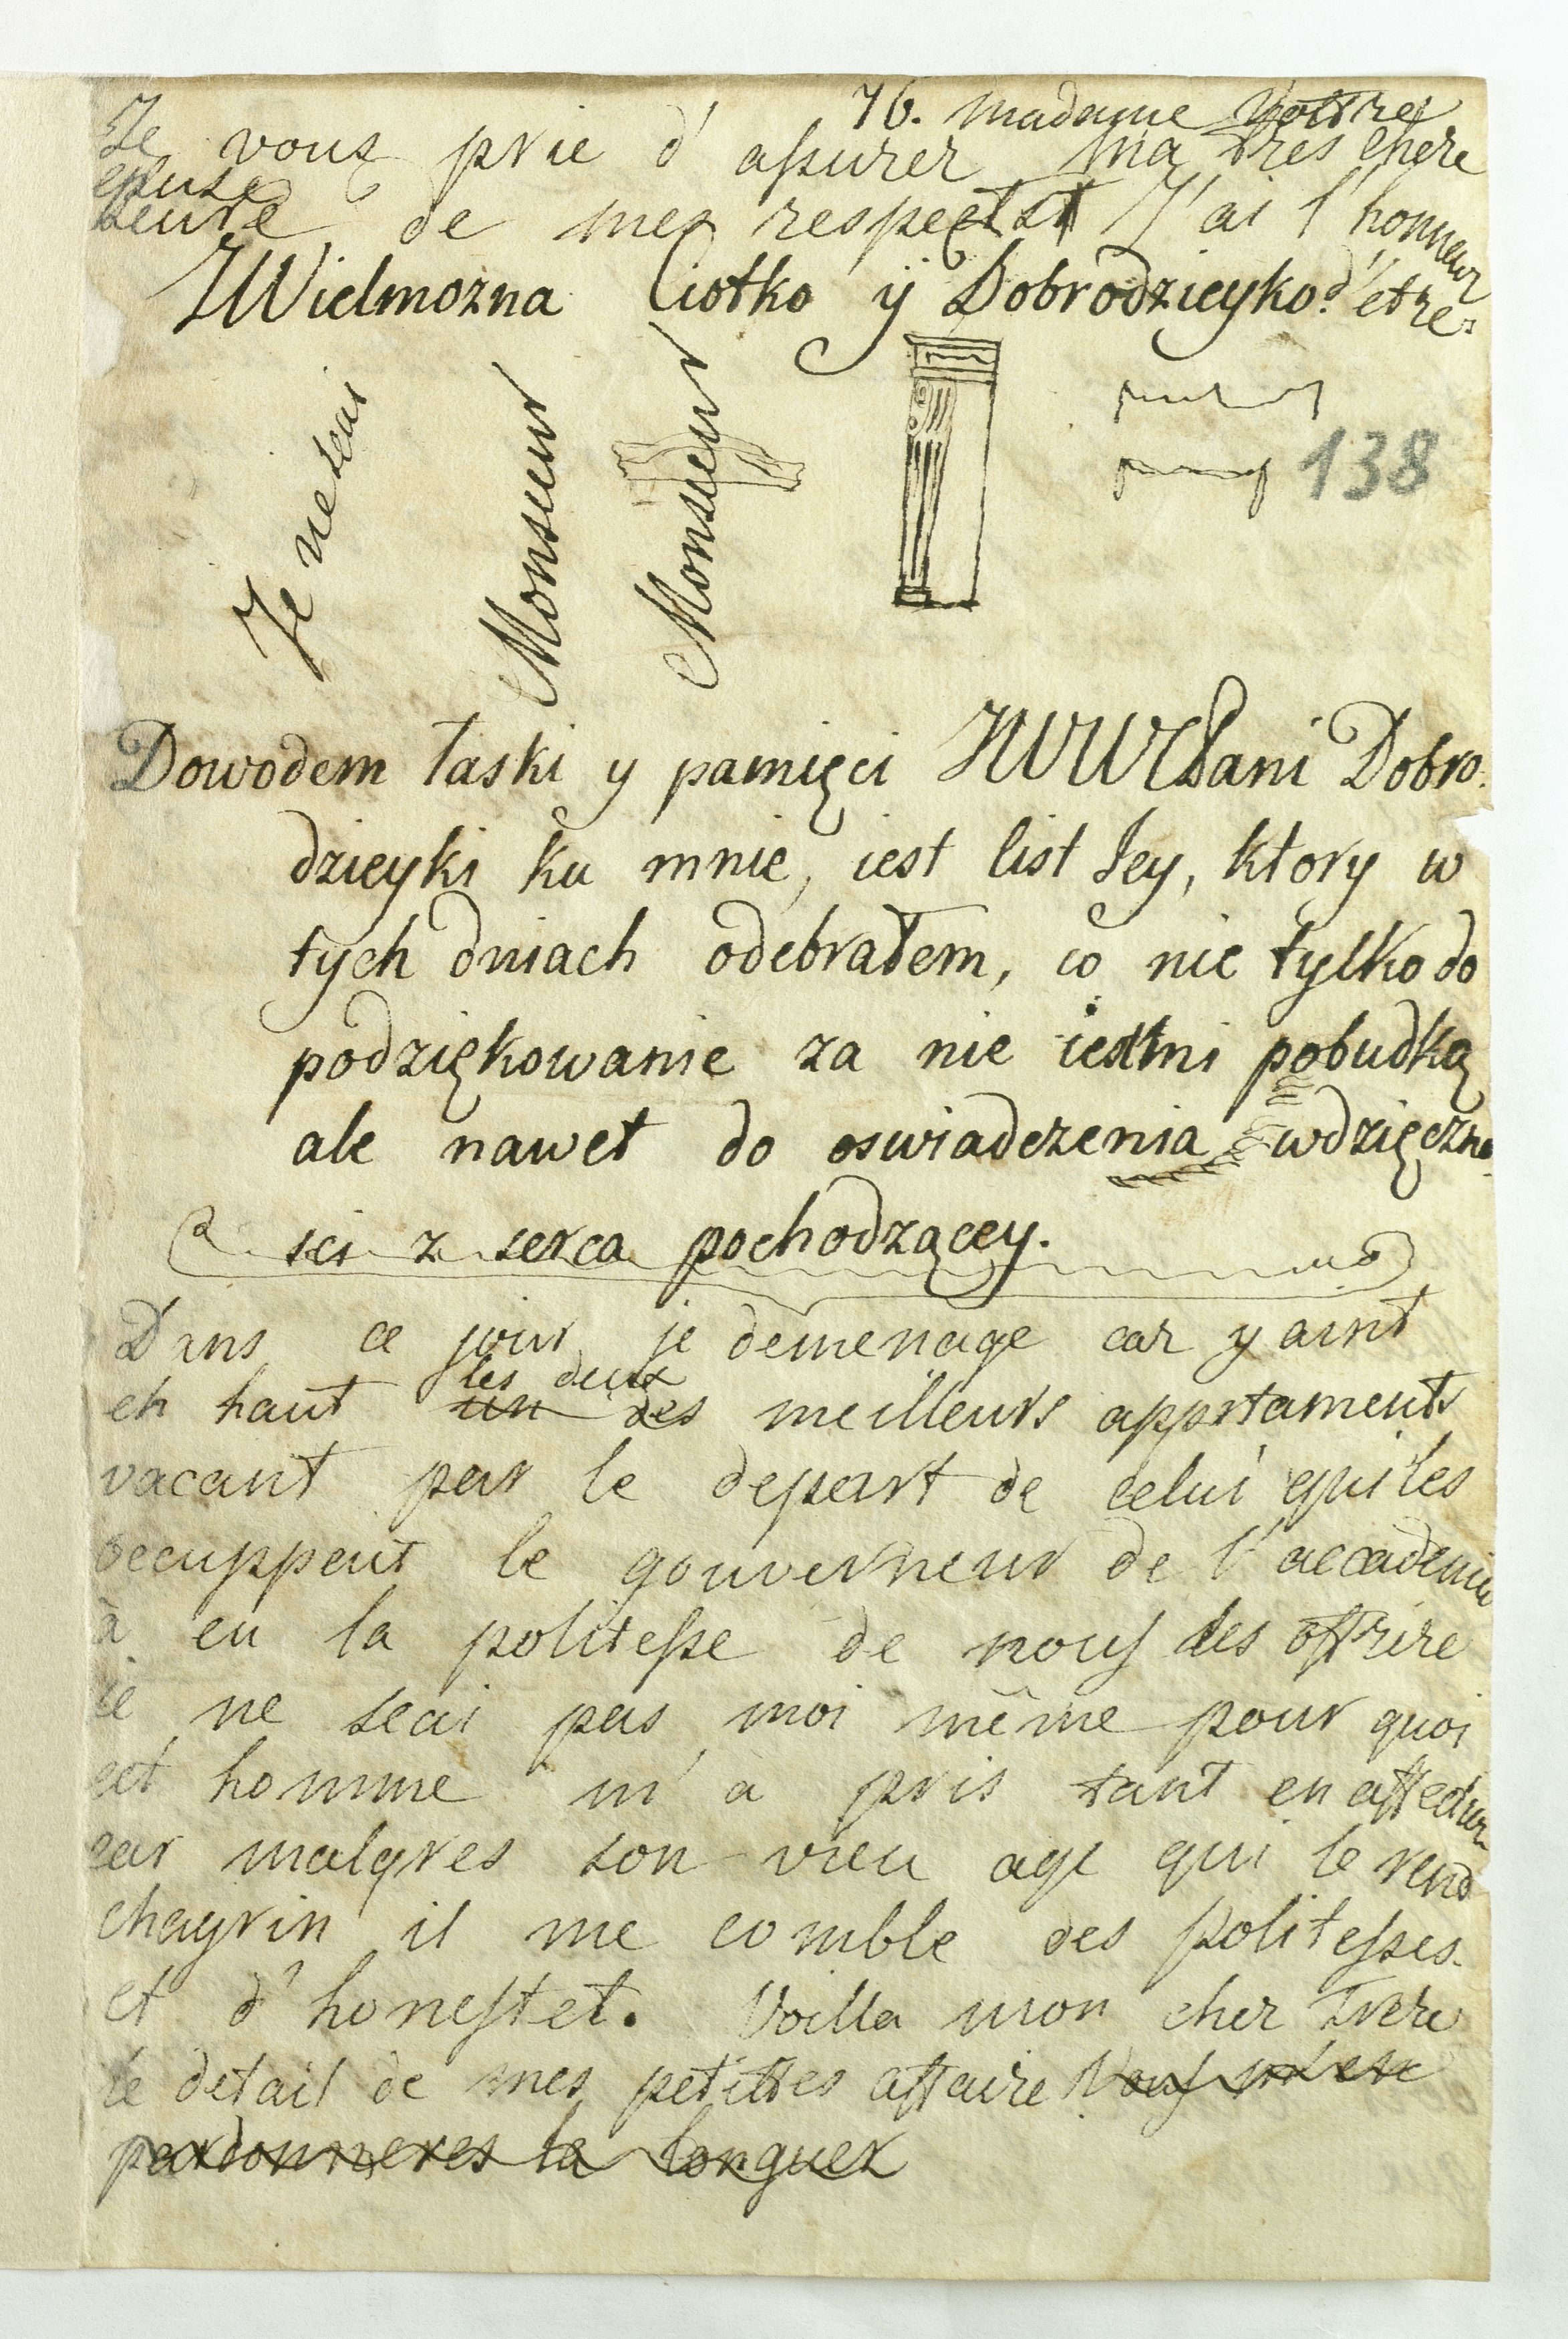 76. madame vottre
Je vous prie d' assurer ma tres chere
epuse
seure de mes respects J'ai l'honneur
d'etre
JWielmozna Ciotko y Dobrodzieyko.
Je ne scai
Monsieur
Monsieur
138
Dowodem łaski y pamięci JWWPani Dobro-
dzieyki ku mnie, iest list Jey, ktory w
tych dniach odebrałem, co nie tylko do
podziękowanie za nie iest mi pobudką
ale nawet do oswiadczenia wdzięczno-
sci z serca pochodzącey.
Dans ce jour je demenage car y aint
les deux
en haut un des meilleurs appartaments
vacant par le depart de celui qui les
occuppent le gouverneur de l'accademie
à eu la politesse de nous les offrire
ie ne scai pas moi même pour quoi
cet homme m'a pris tant en affection
car malgres son vieu age qui le rend
chagrin il me comble des politesses
et d'honestet. Voilla mon cher frere
le detail de mes petittes affaire Vous
pardonneres la longuer